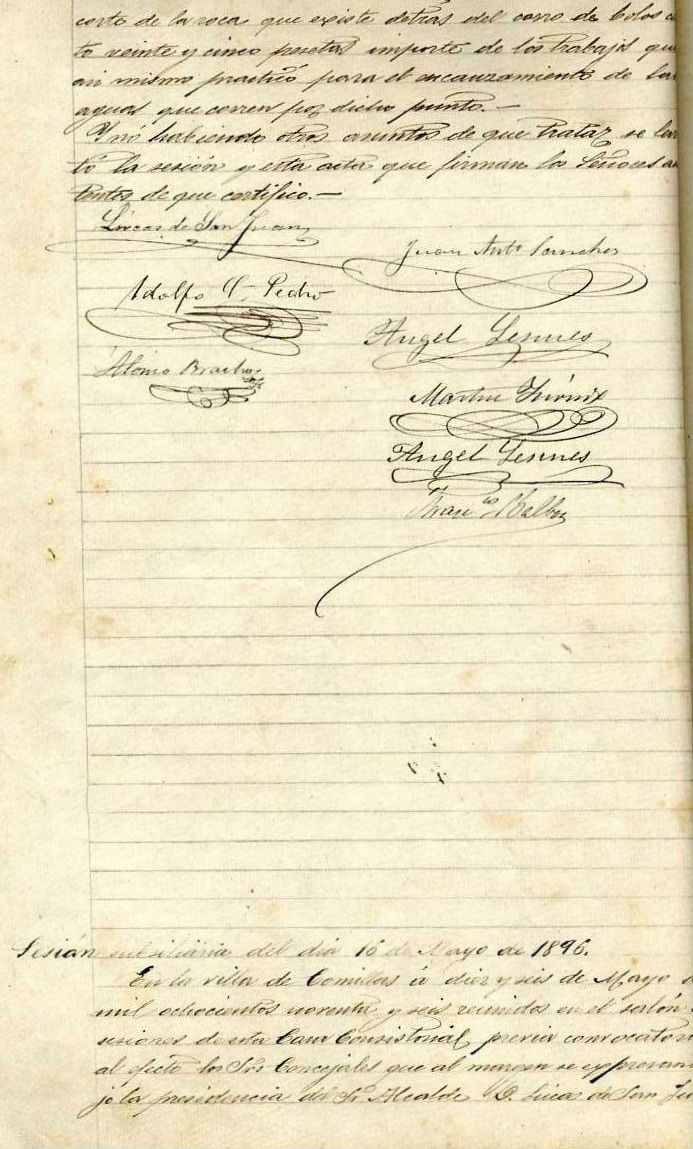 corte de la roca que existe detrás del corro de bolos
to veinte y cinco pesetas importe de los trabajos qu
asi mismo practicó para el encauzamiento de las
aguas que corren por dicho punto.—
Y no habiendo otros asuntos de que tratar se lev
tó la sesión y esta acta que firman los Señores a
tentes de que certifico.—
Lucas de San Juan
Juan Ant.º Sanchez
Adolfo G. Pedró
Angel
Martin
Angel
Fran.co Balbu
Sesión subsidiaria del dia 16 de Mayo de 1896.
En la villa de Comillas á diez y seis de Mayo d
mil ochocientos noventa y seis reunidos en el salón
sesiones de esta Casa Consistorial, previa convocator
al efecto los Sres Concejales que al margen se expresan
jo la presidencia del Sr. Alcalde D. Lucas de San Ju